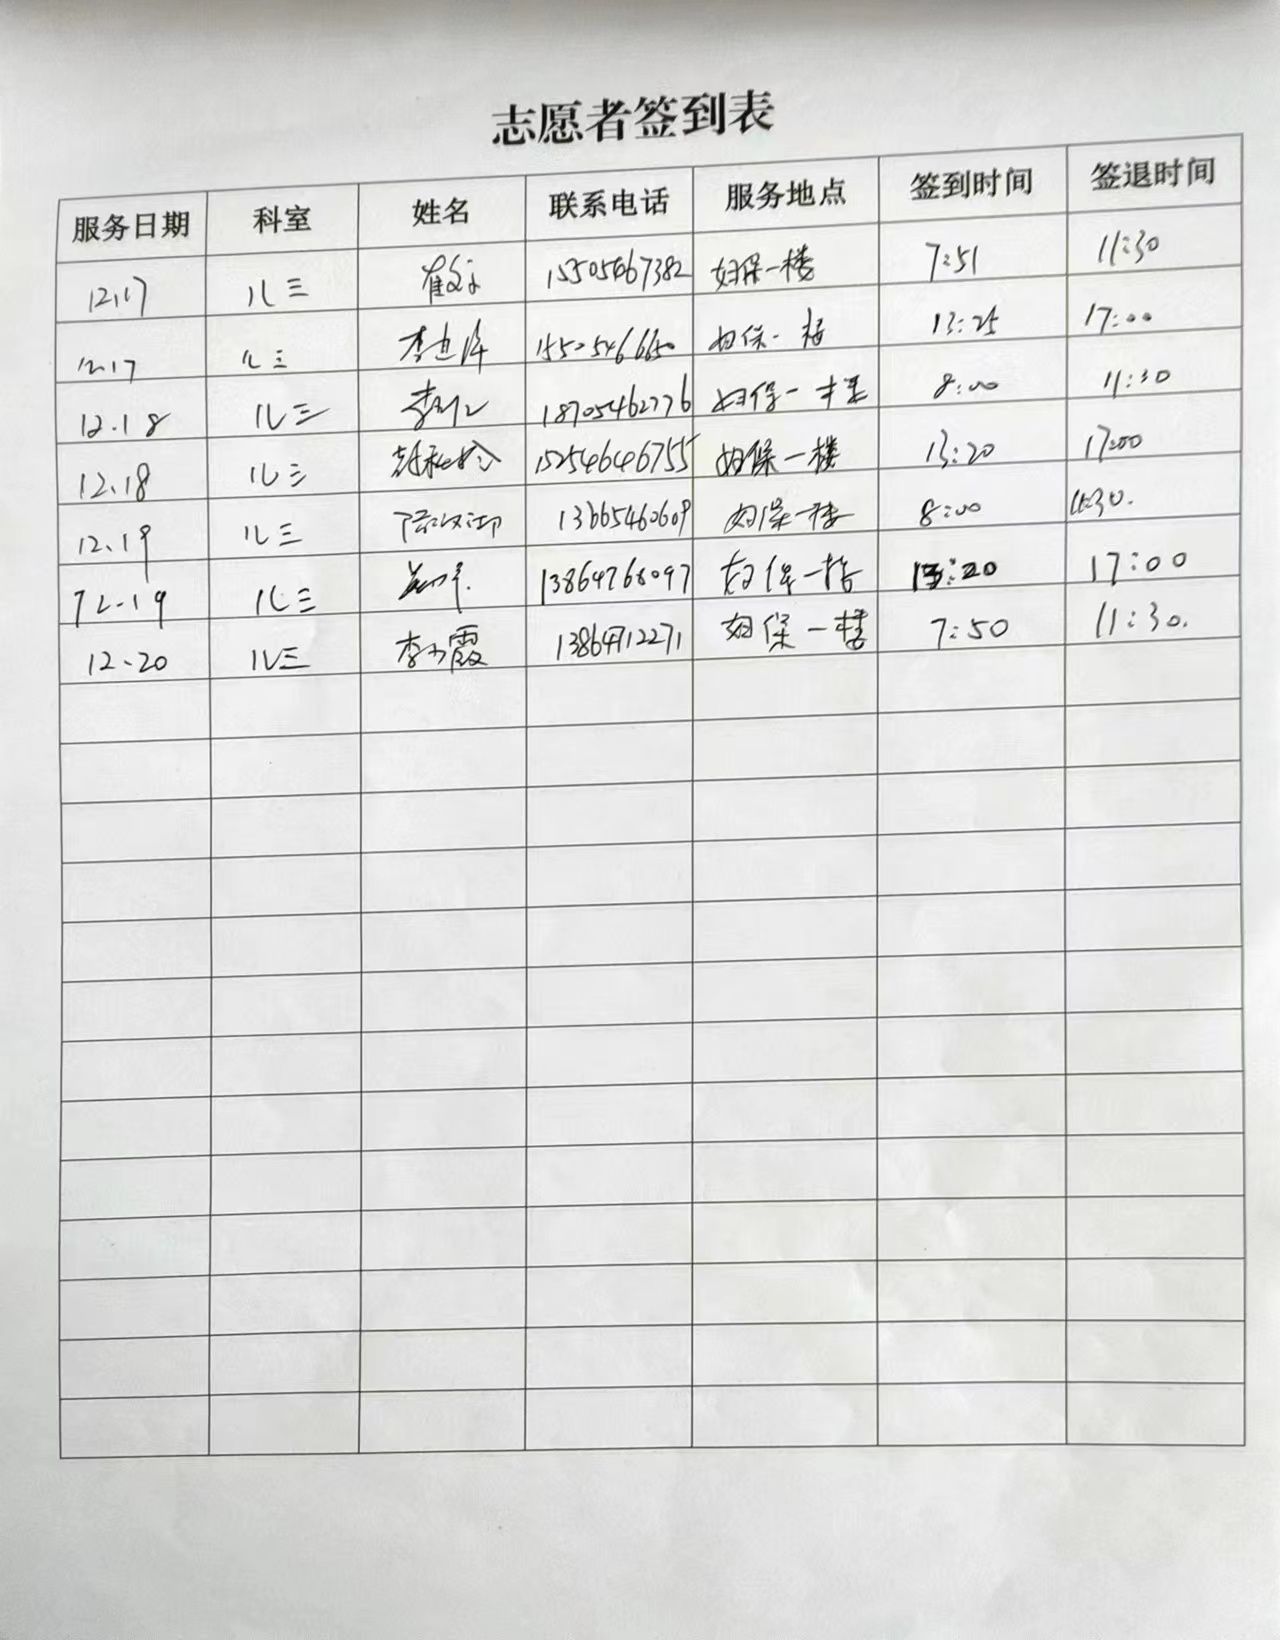 志愿者签到表
服务日期 科室 姓名 联系电话 服务地点 签到时间 签退时间
12.17 儿三 妇保一楼 7:51 11:30
12.17 儿三 妇保一楼 13:25 17:00
12.18 儿三 18705462776 妇保一楼 8:00 11:30
12.18 儿三 15254646755 妇保一楼 13:20 17:00
12.19 儿三 13665460609 妇保一楼 8:00 11:30.
12.19 儿三 13864768097 妇保一楼 13:20 17:00
12.20 儿三 李小霞 13864712271 妇保一楼 7:50 11:30.